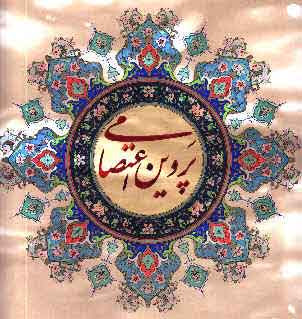 پَروین اعتصامی